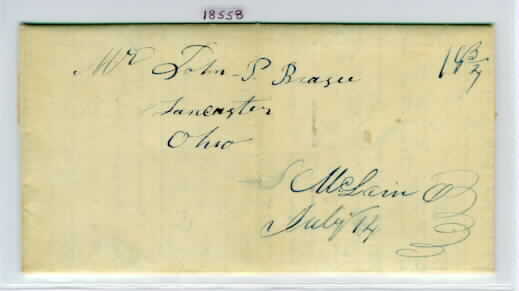 18558
Mr John P. Brasee
Lancaster
Ohio
McLain
July 14